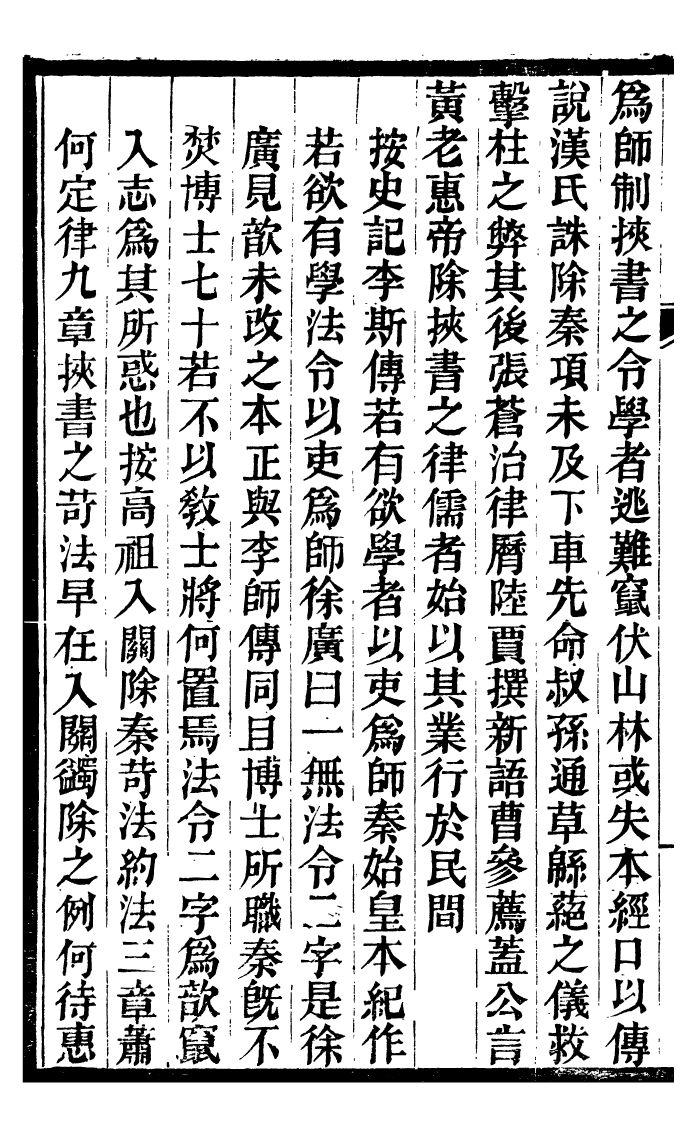 爲師制挾書之令學者逃難竄伏山林或失本經口以傳
說漢氏誅除秦項未及下車先命叔孫通草緜蕝之儀救
擊柱之弊其後張蒼治律曆陸賈撰新語曹參薦蓋公言
黃老惠帝除挾書之律儒者始以其業行於民間
按史記李斯傳若有欲學者以吏爲師秦始皇本紀作
若欲有學法令以吏爲師徐廣曰一無法令二字是徐
廣見歆未改之本正與李師傳同且博士所職秦旣不
焚博士七十若不以敎士將何置焉法令二字爲歆竄
入志爲其所惑也按高祖入關除秦苛法約法三章蕭
何定律九章挾書之苛法早在入關蠲除之例何待惠